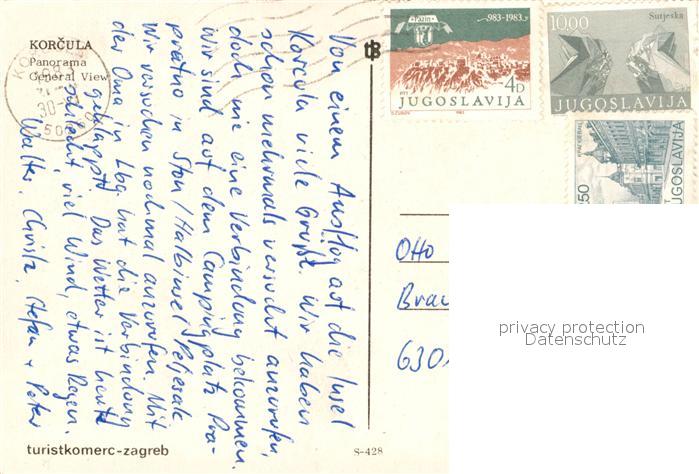 KORČULA
Panorama
General View
Von einem Ausflug auf die Insel
Korcula viele Grüße. Wir haben
schon mehrmals versucht anzurufen,
doch nie eine Verbindung bekommen.
Wir sind auf dem Campingplatz Pra-
pratno in Ston/Halbinsel Peljesak
Wir versuchen nochmal anzurufen. Mit
der Oma in Lbg. hat die Verbindung
geklappt! Das Wetter ist heute
schlecht, viel Wind, etwas Regen.
Walter, Christa, Stefan + Peter
turistkomerc-zagreb
S-428
Pazin
983-1983
4D
JUGOSLAVIJA
1000
Sutjeska
JUGOSLAVIJA
250
JUGOSLAVIJA
Otto
Brau
630
privacy protection
Datenschutz